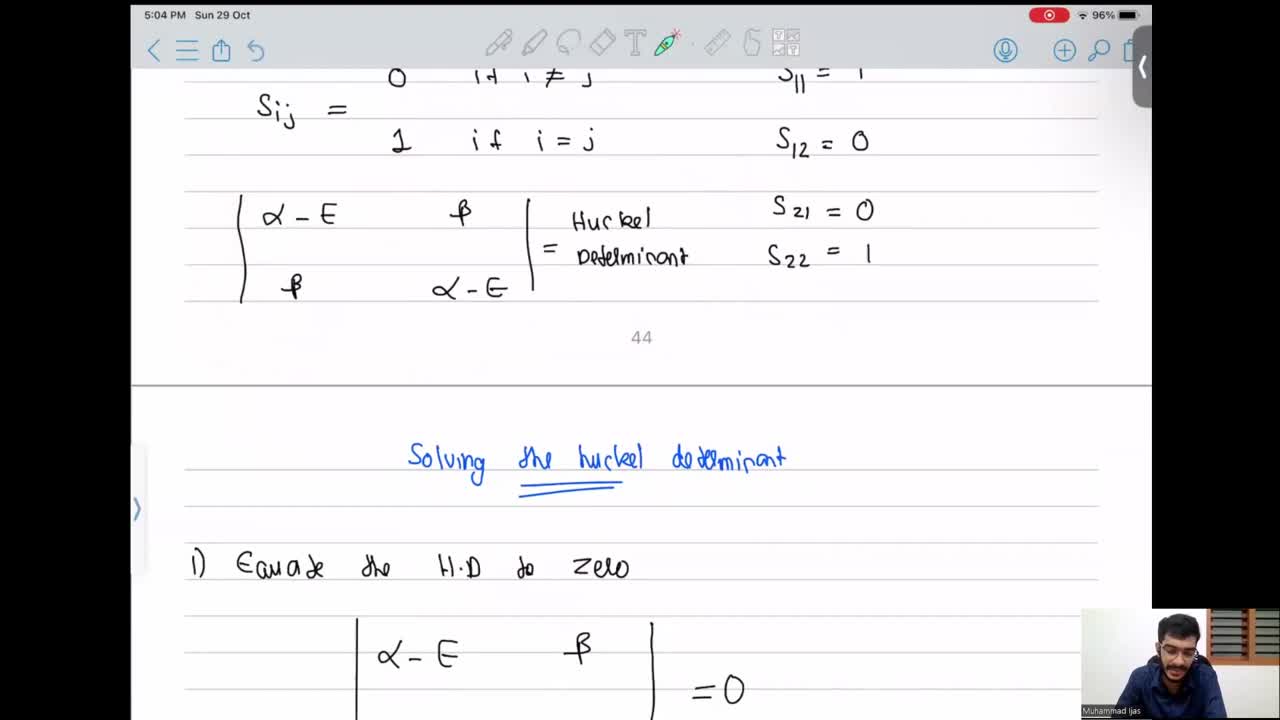 5:04 PM Sun 29 Oct
96%
0 if i ≠ j
S11 = 1
Sij =
1 if i = j
S12 = 0
α - E β
= Huckel Determinant
β α - E
S21 = 0
S22 = 1
44
Solving the huckel determinant
1) Equate the H.D to zero
α - E β
= 0
Muhammad Ijas